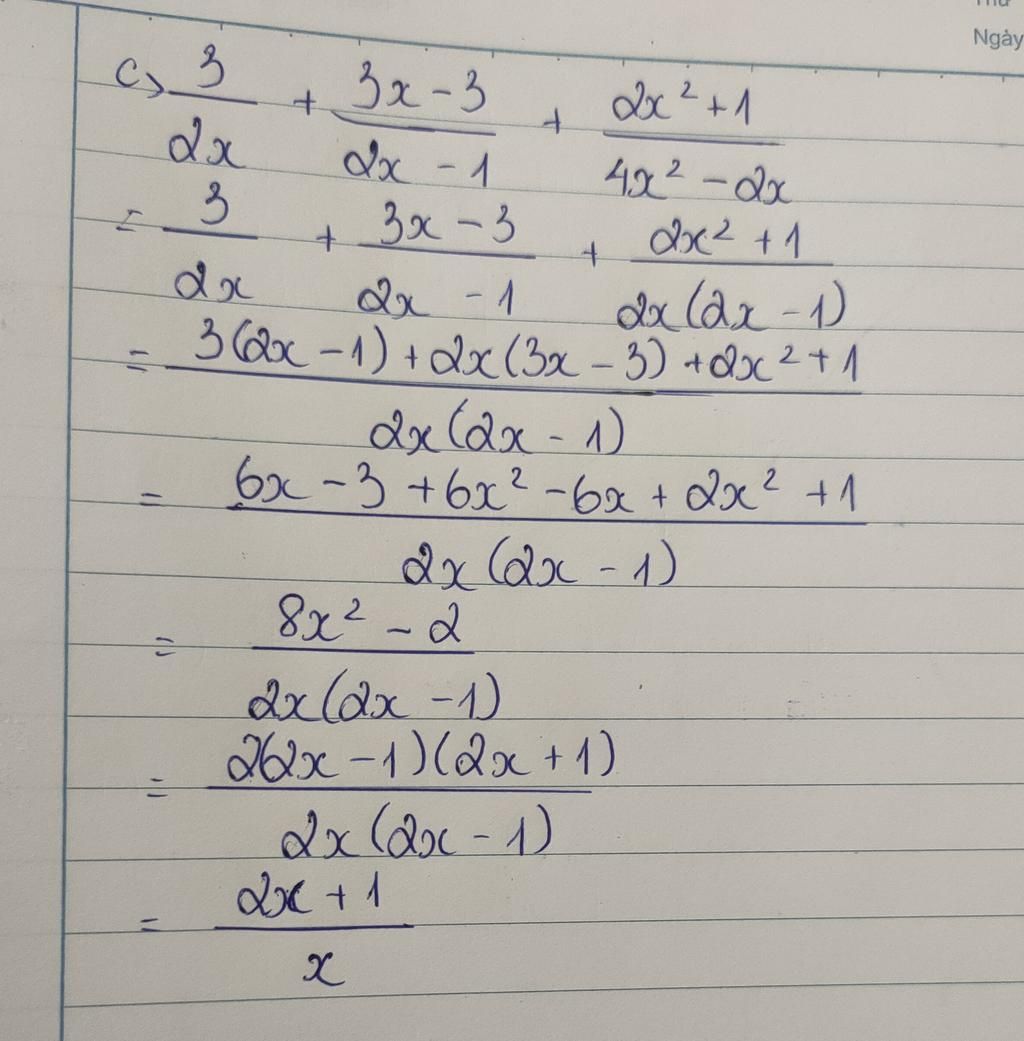 Thứ
Ngày
c) 3/2x + (3x - 3)/(2x - 1) + (2x² + 1)/(4x² - 2x)
= 3/2x + (3x - 3)/(2x - 1) + (2x² + 1)/(2x(2x - 1))
= (3(2x - 1) + 2x(3x - 3) + 2x² + 1)/(2x(2x - 1))
= (6x - 3 + 6x² - 6x + 2x² + 1)/(2x(2x - 1))
= (8x² - 2)/(2x(2x - 1))
= (2(2x - 1)(2x + 1))/(2x(2x - 1))
= (2x + 1)/x